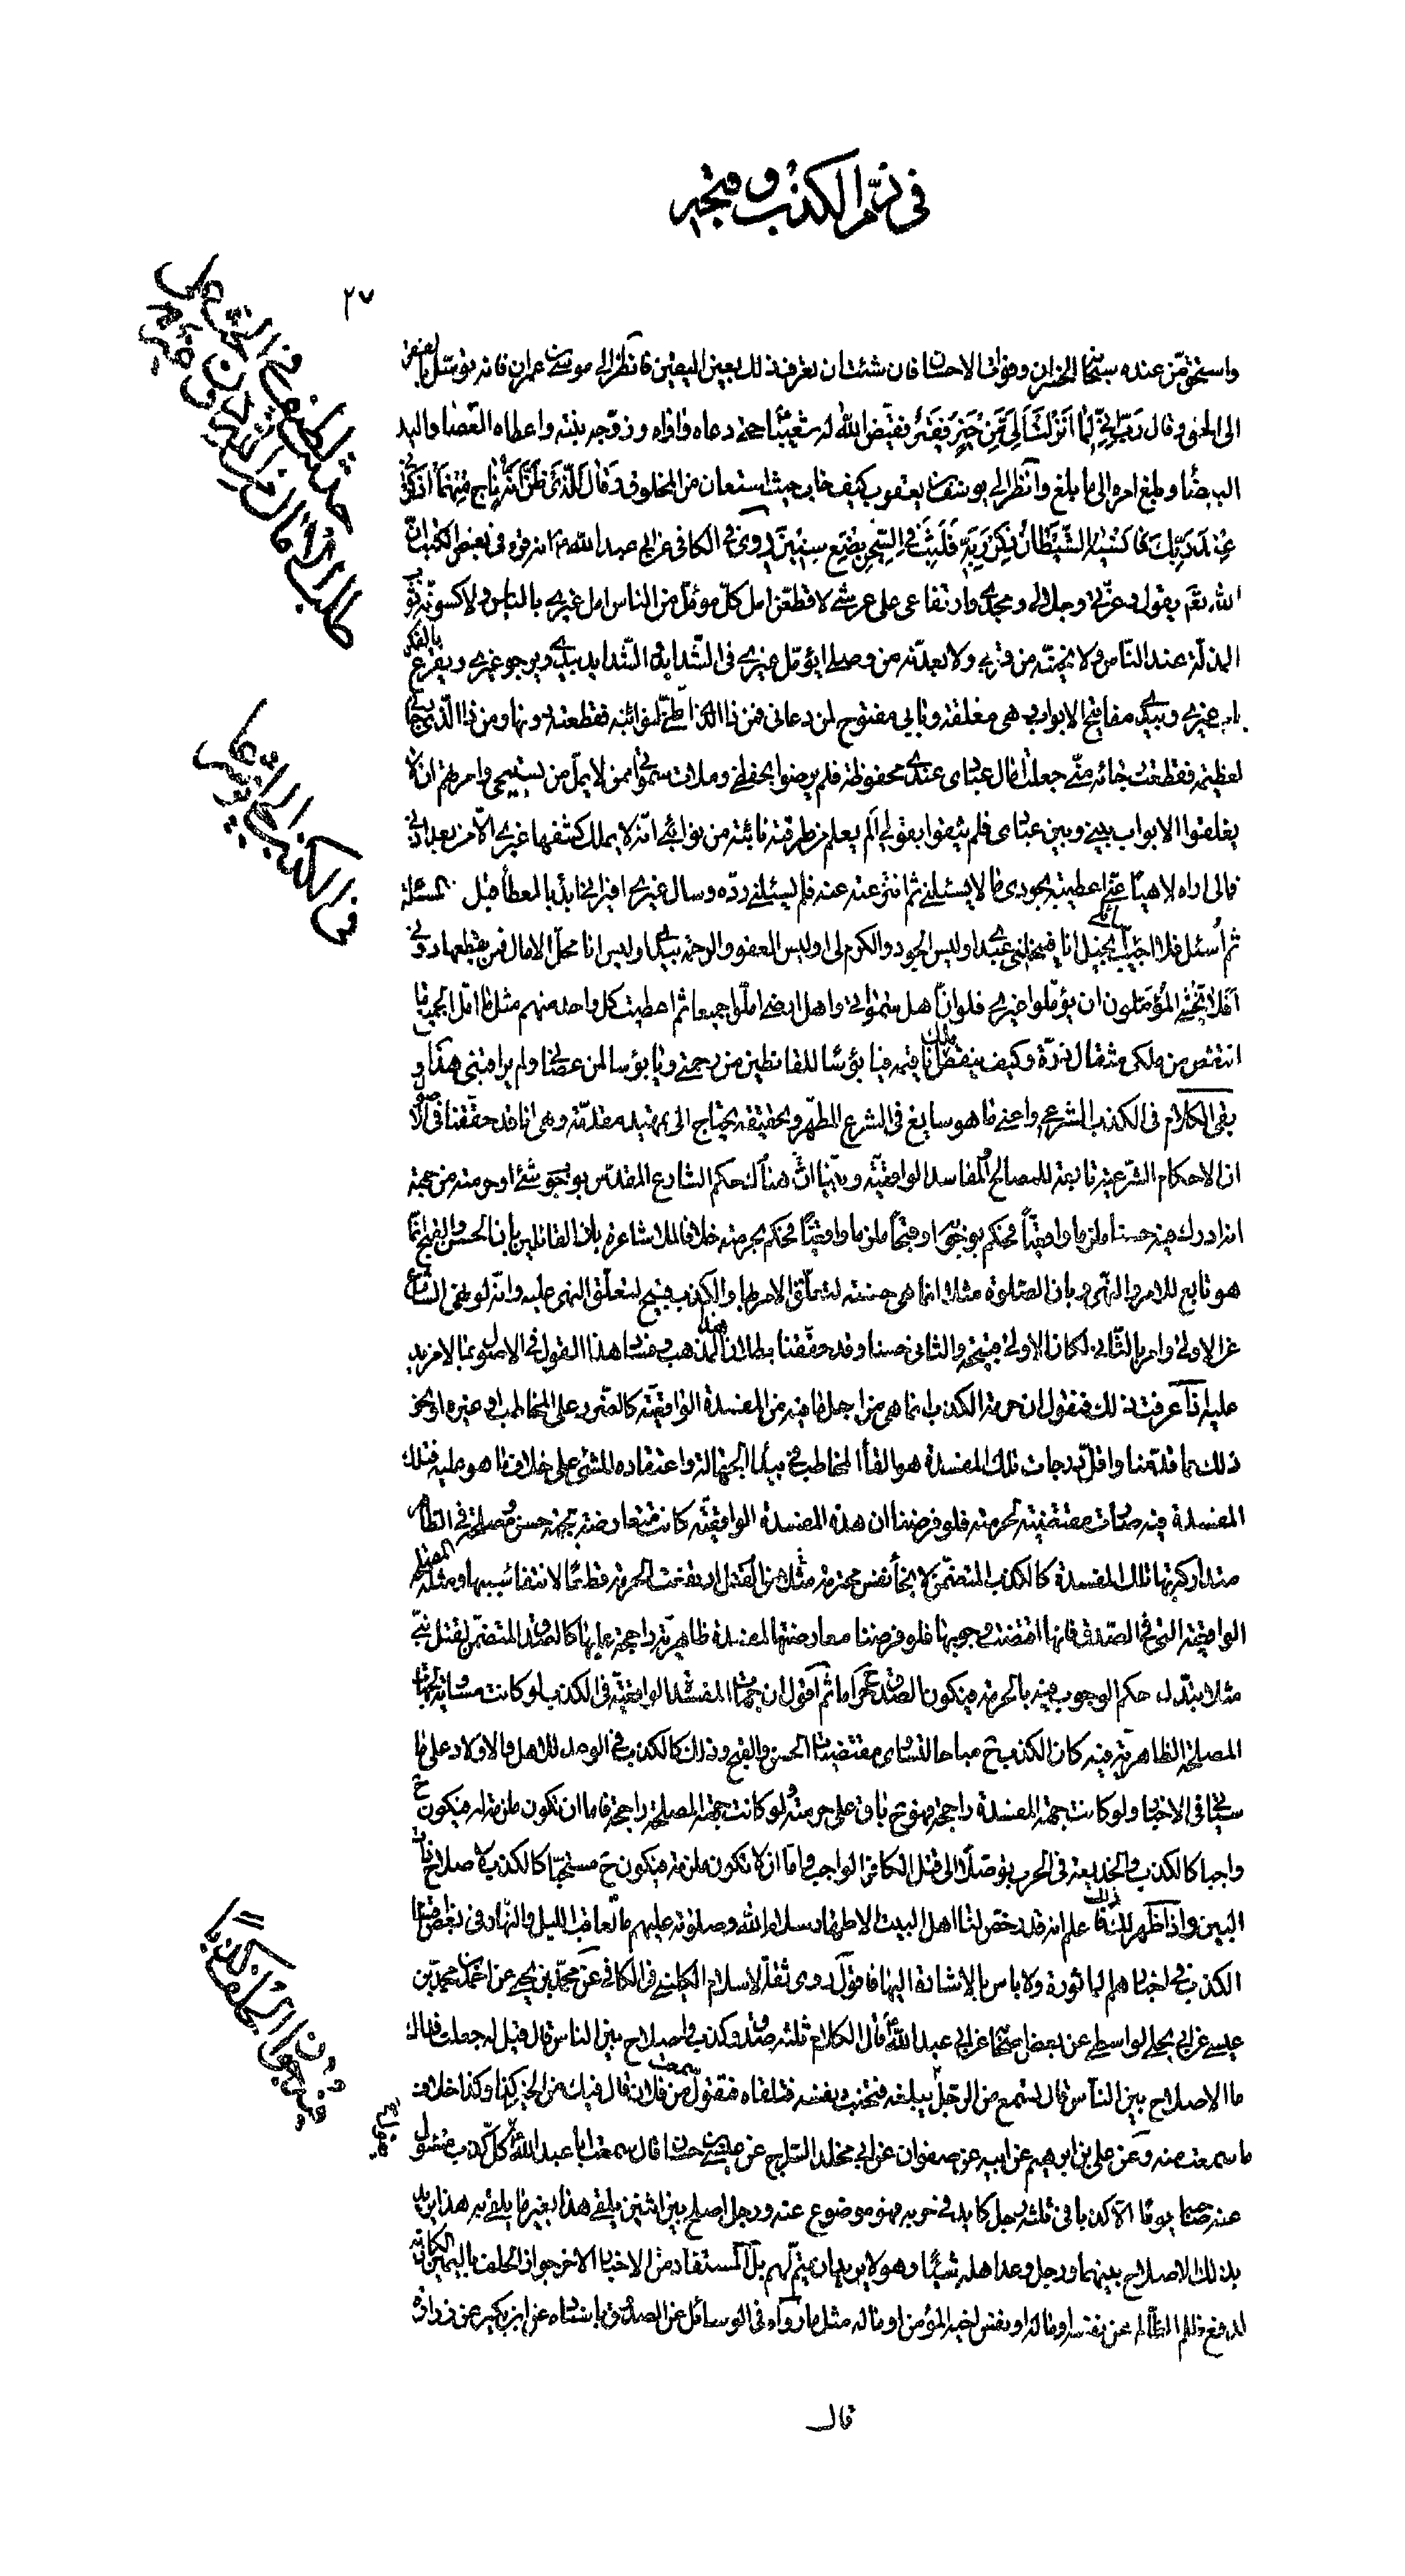 في ذم الكذب و قبحه
٢٧
واستحق من عنده سبحانه الخسران وفوات الاحسان فان شئت ان تعرف ذلك بعين اليقين فانظر الى موسى بن عمران فانه توسل بالعز
الى الغنى وقال رَبِّ إِنِّي لِمَا أَنْزَلْتَ إِلَيَّ مِنْ خَيْرٍ فَقِيرٌ فقيض الله له شعيبا حتى دعاه واواه وزوجه بنته واعطاه العصا واليد
البيضاء وبلغ امره الى ما بلغ وانظر الى يوسف بن يعقوب كيف خاب حيث استعان من المخلوق وَقَالَ لِلَّذِي ظَنَّ أَنَّهُ نَاجٍ مِنْهُمَا اذْكُرْنِي
عِنْدَ رَبِّكَ فَأَنْسَاهُ الشَّيْطَانُ ذِكْرَ رَبِّهِ فَلَبِثَ فِي السِّجْنِ بِضْعَ سِنِينَ روى في الكافي عن ابي عبد الله ع انه قرء في بعض الكتب ان
الله تعم يقول وعزتي وجلالي ومجدي وارتفاعي على عرشي لاقطعن امل كل مؤمل من الناس امل غيري بالياس ولاكسونه ثوب
المذلة عند الناس ولانحينه من قربي ولابعدنه من وصلي ايؤمل غيري في الشدايد والشدايد بيدي ويرجو غيري ويقرع بالفكر
باب غيري وبيدي مفاتيح الابواب وهي مغلقة وبابي مفتوح لمن دعاني فمن ذا الذي املني لنوائبه فقطعته دونها ومن ذا الذي رجاني
لعظيمة فقطعت رجائه مني جعلت امال عبادي عندي محفوظة فلم يرضوا بحفظي وملات سمواتي ممن لا يمل من تسبيحي وامرتهم ان لا
يغلقوا الابواب بيني وبين عبادي فلم يثقوا بقولي الم يعلم من طرقته نائبة من نوائبي انه لا يملك كشفها غيري الا من بعد اذني
فمالي اراه لاهيا عني اعطيته بجودي ما لا يسئلني ثم انتزعته عنه فلم يسئلني رده وسال غيري افيراني ابدأ بالعطا قبل المسئلة
ثم اُسئل فلا اجيب سائلي ابخيل انا فيبخلني عبدي اوليس الجود والكرم لي اوليس العفو والرحمة بيدي اوليس انا محل الامال فمن يقطعها دوني
افلا يخشى المؤملون ان يؤملوا غيري فلو ان اهل سمواتي واهل ارضي املوا جميعا ثم اعطيت كل واحد منهم مثل ما امل الجميع ما
انتقص من ملكي مثقال ذرة وكيف ينقص ملك انا قيمه فيا بؤسا للقانطين من رحمتي ويا بؤسا لمن عصاني ولم يراقبني هذا و
بقي الكلام في الكذب الشرعي واعني ما هو سايغ في الشرع المطهر وتحقيقه يحتاج الى تمهيد مقدمة وهي انا قد حققنا في الاصول
ان الاحكام الشرعية تابعة للمصالح والمفاسد الواقعية وبينا ان هناك حكم الشارع المقدس بوجوب شئ او حرمته من جهة
انه ادرك فيه حسنا ملزما واقعيا فحكم بوجوبه او قبحا ملزما واقعيا فحكم بحرمته خلافا للاشاعرة بان القائلين بان الحسن والقبح انما
هو تابع للامر والنهي وبان الصلوة مثلا انما هي حسنة لتعلق الامر بها والكذب قبيح لتعلق النهي عليه وانه لو نهى الشارع
عن الاولى وامر بالثاني لكان الاولى قبيحة والثاني حسنا وقد حققنا بطلان هذا المذهب وفساد هذا القول في الاصول بما لا مزيد
عليه اذا عرفت ذلك فنقول ان حرمة الكذب انما هي من اجل ما فيه من المفسدة الواقعية كالضرر على المخاطب او غيره او نحو
ذلك مما قدمنا واقل درجات تلك المفسدة هو القاء المخاطب في بيداء الجهالة واعتقاده الشئ على خلاف ما هو عليه فتلك
المفسدة فيه صارت مقتضية لحرمته فلو فرضنا ان هذه المفسدة الواقعية كانت متعارضة بجهة حسن ومصلحة في الظاهر
متداركة بها تلك المفسدة كالكذب المتضمن لانجاء نفس محترمة مثلا من القتل ارتفعت الحرمة قطعا لانتفاء سببها ومثله المصلحة
الواقعية التي في الصدق فانها اقتضت وجوبها فلو فرضنا معارضتها لمفسدة ظاهرية راجحة عليها كالصدق المتضمن لقتل نبي
مثلا يتبدل حكم الوجوب فيه بالحرمة فيكون الصدق ح حراما ثم اقول ان جهات المفسدة الواقعية في الكذب لو كانت مساوية لجهات
المصلحة الظاهرية فيه كان الكذب ح مباحا لتساوي مقتضيات الحسن والقبح وذلك كالكذب في الوعد للاهل والاولاد على ما
سياتي في الاخبار ولو كانت جهة المفسدة راجحة فهو ح باق على حرمته ولو كانت جهة المصلحة راجحة فاما ان تكون ملزمة فيكون ح
واجبا كالكذب والخديعة في الحرب توصلا الى قتل الكافر الواجب واما ان لا تكون ملزمة فيكون ح مستحبا كالكذب لاصلاح ذات
البين واذا ظهر لك ذلك فاعلم انه قد رخص لنا اهل البيت الاطهار سلام الله وصلوته عليهم ما تعاقب الليل والنهار في بعض اقسام
الكذب في اخبارهم الماثورة ولا باس بالاشارة اليها فاقول روى ثقة الاسلام الكليني في الكافي عن محمد بن يحيى عن احمد بن محمد بن
عيسى عن ابي يحيى الواسطي عن بعض اصحابنا عن ابي عبد الله ع قال الكلام ثلثة صدق وكذب واصلاح بين الناس قال قيل له جعلت فداك
ما الاصلاح بين الناس قال تسمع من الرجل كلاما يبلغه فتخبث نفسه فتلقاه فتقول سمعت من فلان قال فيك من الخير كذا وكذا خلاف
ما سمعت منه وعن علي بن ابراهيم عن ابيه عن صفوان عن ابي مخلد السراج عن عيسى بن حسان قال سمعت ابا عبد الله ع يقول كل كذب مسئول
عنه صاحبه يوما الا كذبا في ثلثة رجل كايد في حربه فهو موضوع عنه ورجل اصلح بين اثنين يلقى هذا بغير ما يلقى به هذا يريد
بذلك الاصلاح بينهما ورجل وعد اهله شيئا وهو لا يريد ان يتم لهم بل المستفاد من الاخبار الاخر جواز الحلف باليمين الكاذبة
لدفع ظلم الظالم عن نفسه او ماله او نفس اخيه المؤمن او ماله مثل ما رواه في الوسائل عن الصدوق باسناده عن ابن بكير عن زرارة
قال
في الكذب الشرعي